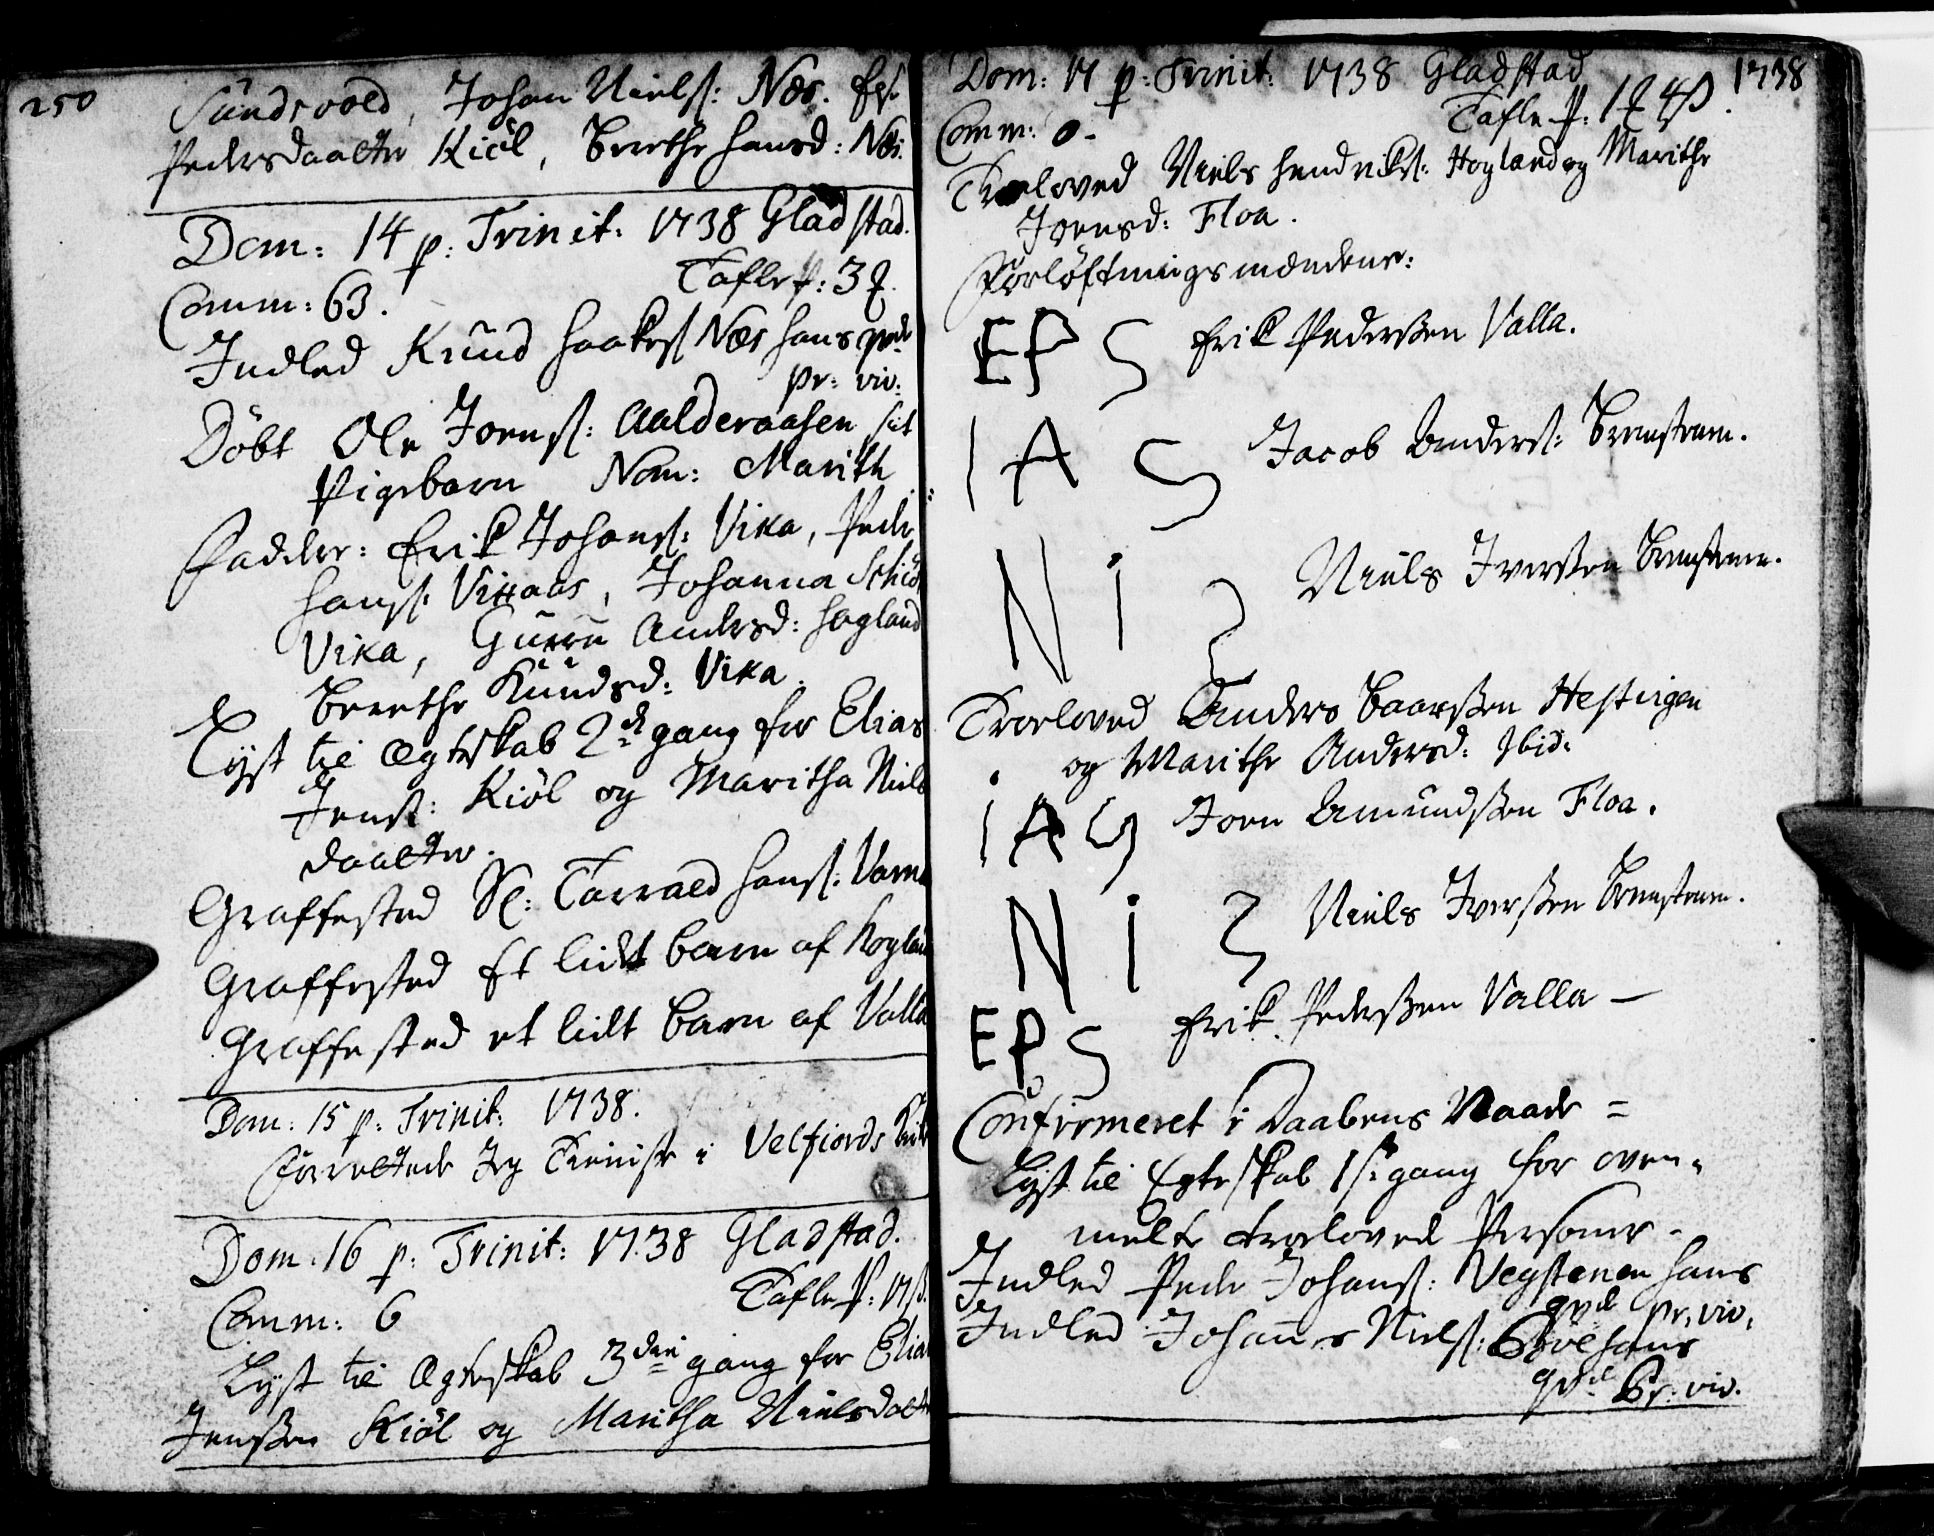 250
Sundsvold, Johan Niels: Næs.
Pedersdaatter Kiöl, Berethe Hansd: Næs.
Dom: 14 p: Trinit: 1738 Gladstad.
Tafle P: 3
Comm: 63.
Indled Knud Haakes Næs hans qvd
pr: viv:
Döbt Ole Joens: Aalderaasen sit
Pigebarn Nom: Marith
Fadder: Erik Johans: Vika, Peder
Hans: Vikaas, Johanna
Vika, Guru Andersd: Hogland
Berethe Knudsd: Vika.
Lyst til Ægteskab 2d gang for Elias
Jens: Kiöl og Maritha Niels
daatter.
Graffæsted Sl: Tarrald Hans:
Graffæsted Et lidt barn af Hogland
Graffæsted et lidt barn af Valla
Dom: 15 p: Trinit: 1738.
Forrettede Jeg Tieniste i Velfiords Kirke
Dom: 16 p: Trinit: 1738 Gladstad.
Tafle P: 17 ß.
Comm: 6
Lyst til Ægteskab 3die gang for Elias
Jenssen Kiöl og Maritha Nielsdatter
Dom: 17 p: Trinit: 1738 Gladstad
1738
Tafle P: 4 ß.
Comm: 0-
Troeloved Niels Hendriks: Hogland og Marithe
Joensd: Floa.
Forlöftningsmændene:
EPS Erik Pederssen Valla.
IAS Jacob Anders: Bremsteen.
NIS Niels Iverssen Bremsteen.
Troeloved Anders Baarssen Hestvigen
og Marithe Andersd: Ibid:
IAS Joen Amundssen Floa.
NIS Niels Iverssen Bremsteen.
EPS Erik Pederssen Valla -
Confirmeret i Daabens Naade =
Lyst til Egteskab 1ste gang for oven-
melte troelovede Personer -
Indled Peder Johans: Vegstenen hans
qvd pr: viv.
Indled Johannes Niels: hans
qvd pr: viv.